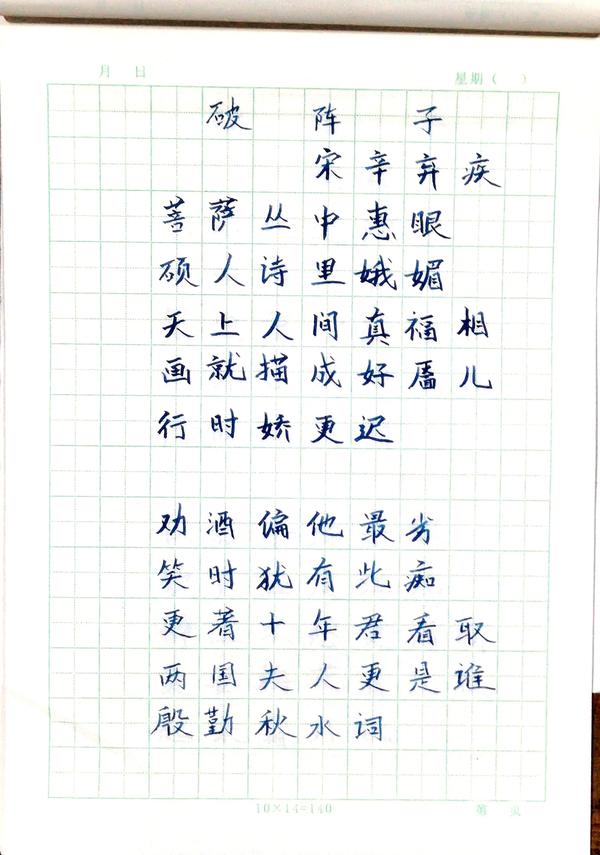 月 日 星期( )
破阵子
宋辛弃疾
菩萨丛中惠眼
硕人诗里娥媚
天上人间真福相
画就描成好靥儿
行时娇更迟
劝酒偏他最劣
笑时犹有些痴
更著十年君看取
两国夫人更是谁
殷勤秋水词
10×14=140 第 页